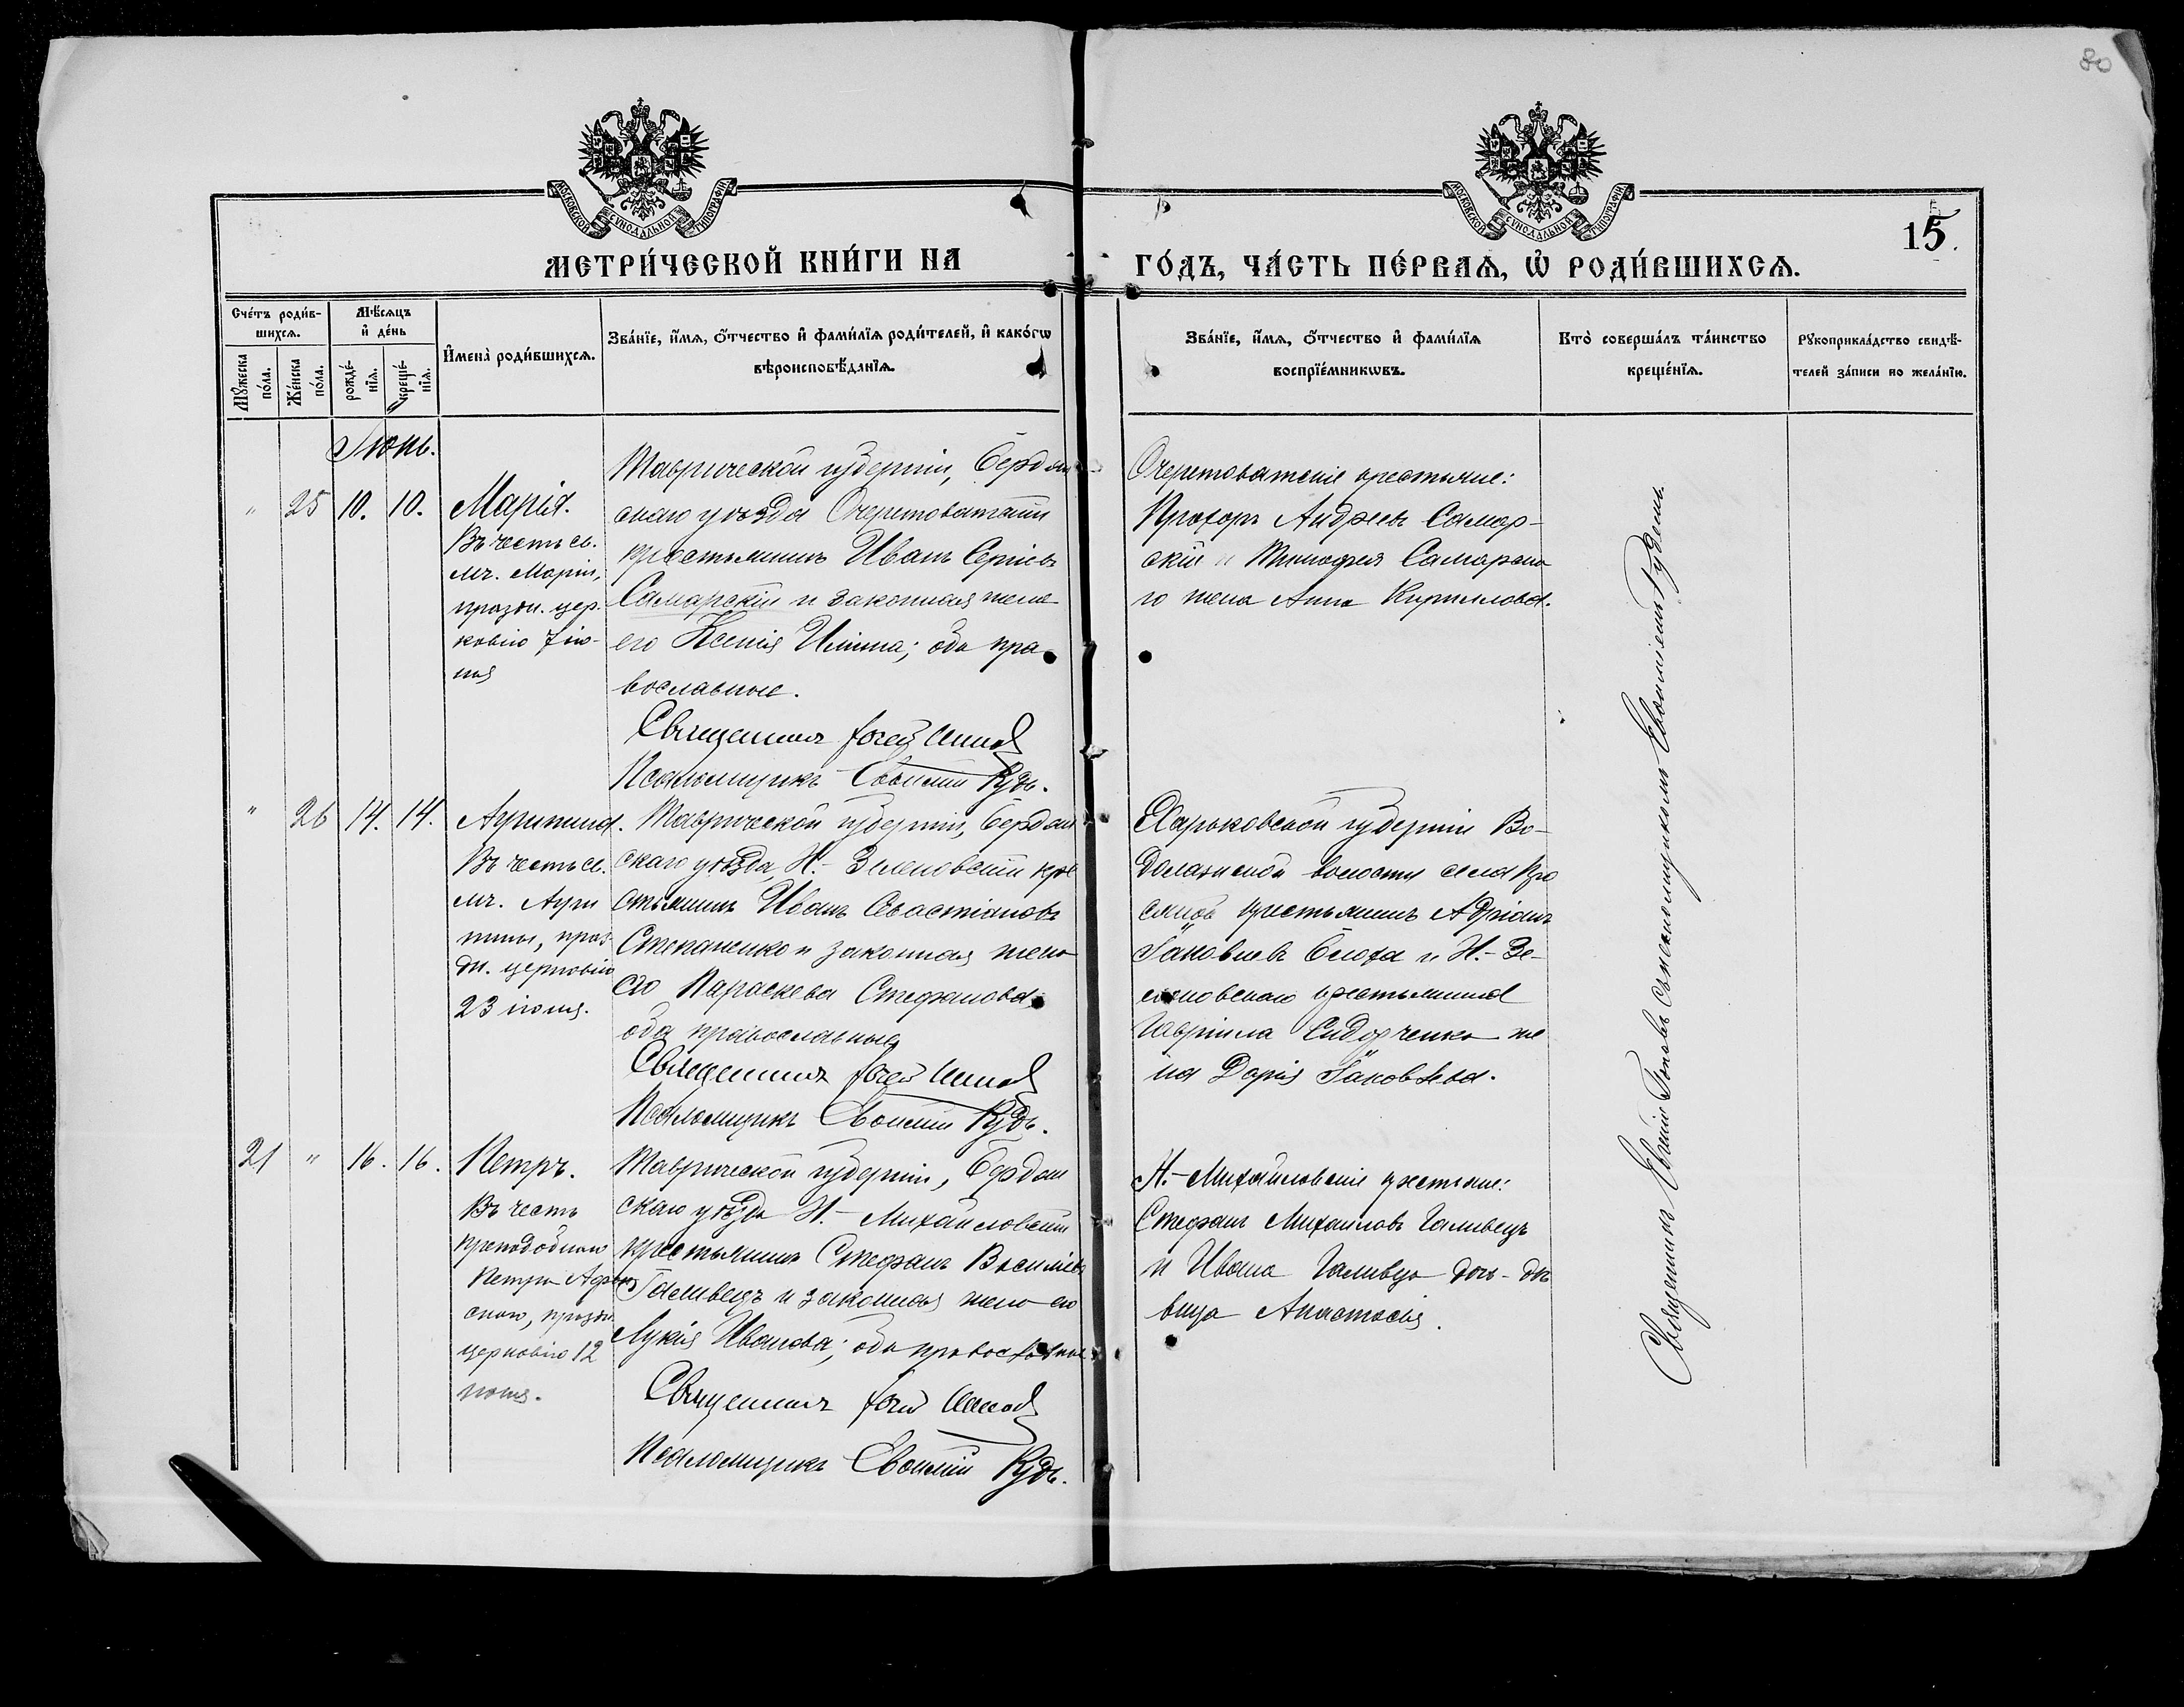 80
МОСКОВСКОЙ СѴНОДАЛЬНОЙ ТИПОГРАФІИ
МОСКОВСКОЙ СѴНОДАЛЬНОЙ ТИПОГРАФІИ
15.
МЕТРИ́ЧЕСКОЙ КНИ́ГИ НА
ГО́ДЪ, ЧА́СТЬ ПЕ́РВАѦ, Ѽ РОДИ́ВШИХСѦ.
Сче́тъ роди́в-
шихсѧ.
Мѣ́сѧцъ
и҆ де́нь
Мꙋ́жеска
по́ла.
Же́нска
по́ла.
рожде́-
нїѧ.
креще́-
нїѧ.
И҆мена̀ роди́вшихсѧ.
Зва́нїе, и҆́мѧ, ѻ҆́тчество и҆ фами́лїѧ роди́телей, и҆ како́гѡ
вѣроисповѣ́данїѧ.
Зва́нїе, и҆́мѧ, ѻ҆́тчество и҆ фами́лїѧ
воспрїе́мникѡвъ.
Кто̀ соверша́лъ та́инство
креще́нїѧ.
Рꙋкоприкла́дство свидѣ́-
телей за́писи по жела́нїю.
Іюнь.
" 25 10. 10.
Марія.
Въ честь св.
мч. Маріи,
праздн. цер-
ковію 7 ію-
ня
Таврической губерніи, Бердян-
скаго уѣзда Очеретоватскій
крестьянинъ Иванъ Сергіевъ
Самарскій и законная жена
его Ксенія Ильина; оба пра-
вославные.
Священникъ
Псаломщикъ Евфимій Рудь.
Очеретоватскіе крестьяне:
Прохоръ Андреевъ Самар-
скій и Тимофея Самарска-
го жена Анна Кириллова.
" 26 14. 14.
Агрипина.
Въ честь св.
мч. Агри
пины, праз-
дн. церковію
23 іюня.
Таврической губерніи, Бердян
скаго уѣзда, Н.-Зеленовскій кре
стьянинъ Иванъ Севастіановъ
Степаненко и законная жена
его Параскева Стефанова;
оба православные
Священникъ
Псаломщикъ Евфимій Рудь.
Харьковской губерніи Во-
долажской волости села
крестьянинъ Адріанъ
Іаковлевъ Блоха и Н.-Зе-
леновскаго крестьянина
Гавріила Сидорченко же
на Дарія Іаковлева.
21 " 16. 16.
Петръ.
Въ честь
преподобнаго
Петра Афон
скаго, праздн.
церковію 12
іюня.
Таврической губерніи, Бердян
скаго уѣзда Н.-Михайловскій
крестьянинъ Стефанъ Василіевъ
Галивецъ и законная жена его
Лукія Иванова; оба православные.
Священникъ
Псаломщикъ Евфимій Рудь.
Н.-Михайловскіе крестьяне:
Стефанъ Михаиловъ Галивецъ
и Ивана Галивца дочь-дѣ-
вица Анастасія.
Священникъ съ псаломщикомъ Евфиміемъ Рудемъ.